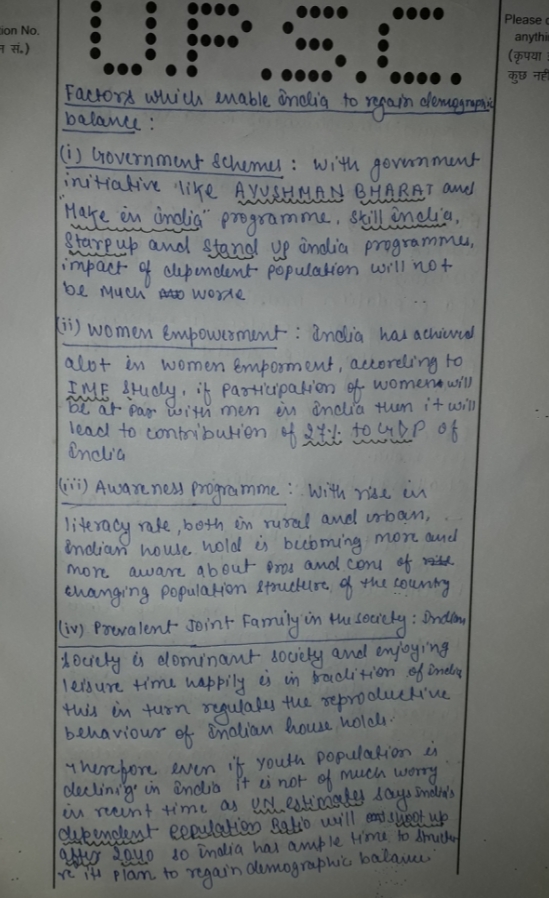 ion No.
न सं.)
U.P.S.C.
Please
anythi
(कृपया
कुछ नहीं
Factors which enable India to regain demographic
balance :
(i) Government Schemes : With government
initiative like AYUSHMAN BHARAT and
"Make in India" programme, Skill India,
Starpup and Stand up India programmes,
impact of dependent population will not
be much worse
(ii) Women Empowerment : India has achieved
alot in women Emporment, according to
IMF Study, if participation of women will
be at par with men in India then it will
lead to contribution of 27% to GDP of
India
(iii) Awareness Programme : With rise in
literacy rate, both in rural and urban,
Indian house hold is becoming more and
more aware about Pros and cons of
changing population structure of the country
(iv) Prevalent Joint Family in the society : Indian
society is dominant society and enjoying
leisure time happily is in tradition of India
this in turn regulates the reproductive
behaviour of Indian house hold.
Therefore even if youth population is
declining in India it is not of much worry
in recent time as UN estimates says India's
dependent Population Ratio will shoot up
after 2040 so India has ample time to structu
re its plan to regain demographic balance.